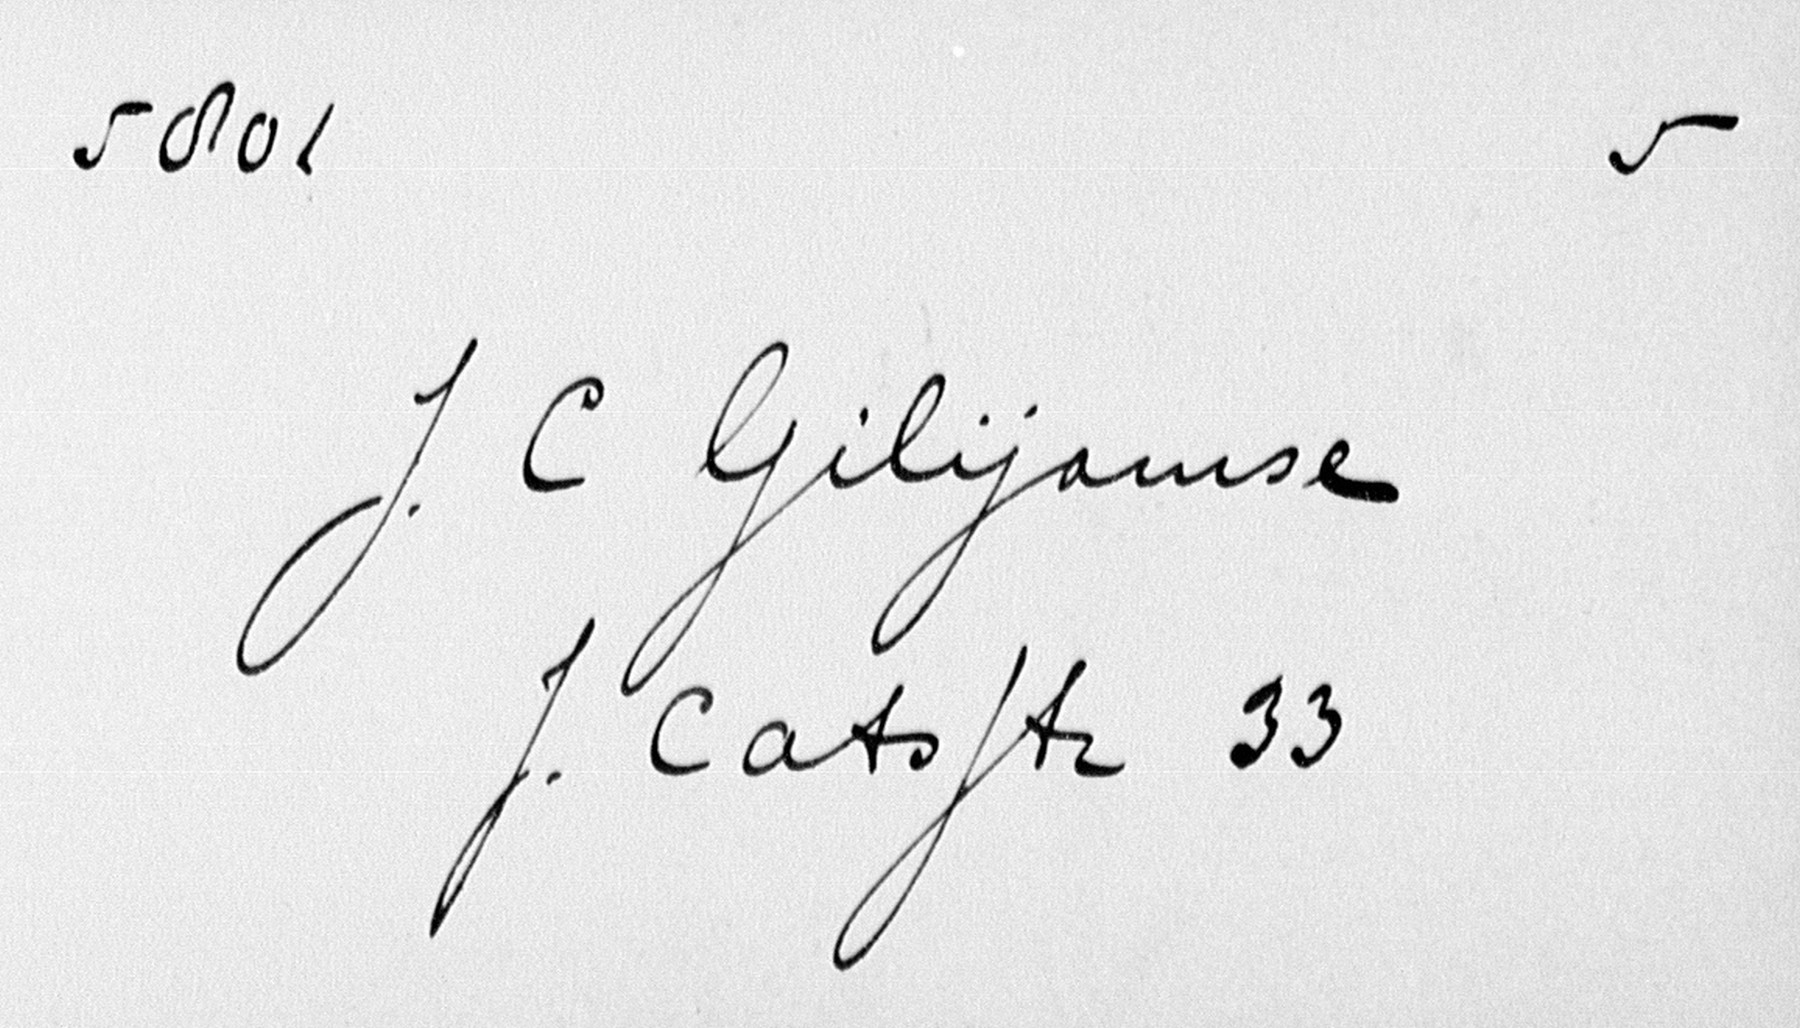 5801 5
J. C Gilijamse
J. Catsstr 33